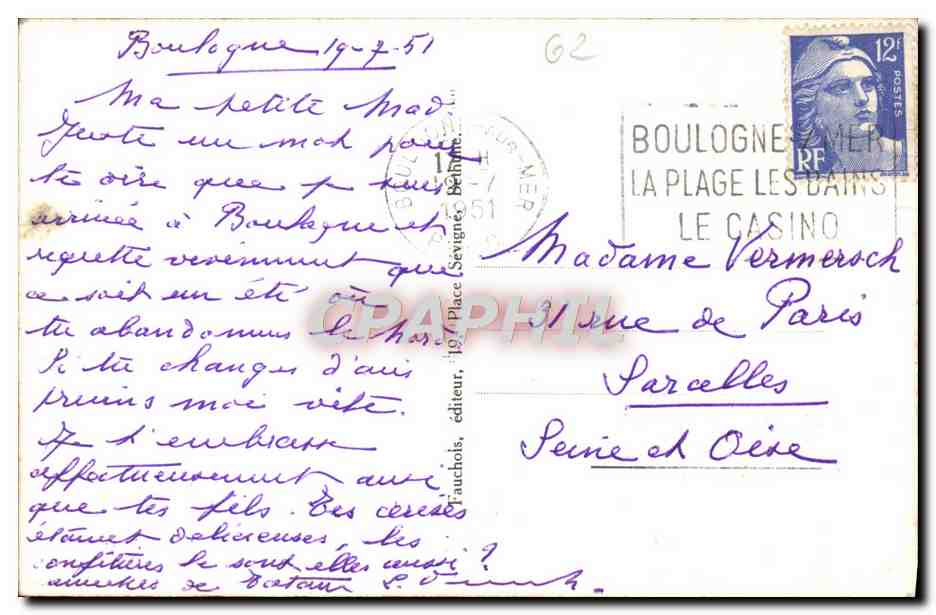 Boulogne 19-7-51
Ma petite Mad
Juste un mot pour
te dire que je suis
arrivée à Boulogne et
regrette vivement que
ce soit un été où
tu abandonnes le Nord
Si tu changes d'avis
préviens moi vite.
Je t'embrasse
affectueusement ainsi
que tes fils. Tes cerises
étaient délicieuses, les
confitures le sont elles aussi ?
amitiés de
Fauchois, éditeur, 19, Place Sévigné, Béthune.
G2
BOULOGNE-SUR-MER
12 H
19-7
1951
BOULOGNE S/ MER
LA PLAGE LES BAINS
LE CASINO
12F
POSTES
RF
Madame Vermersch
31 rue de Paris
Sarcelles
Seine et Oise
CPAPHIL